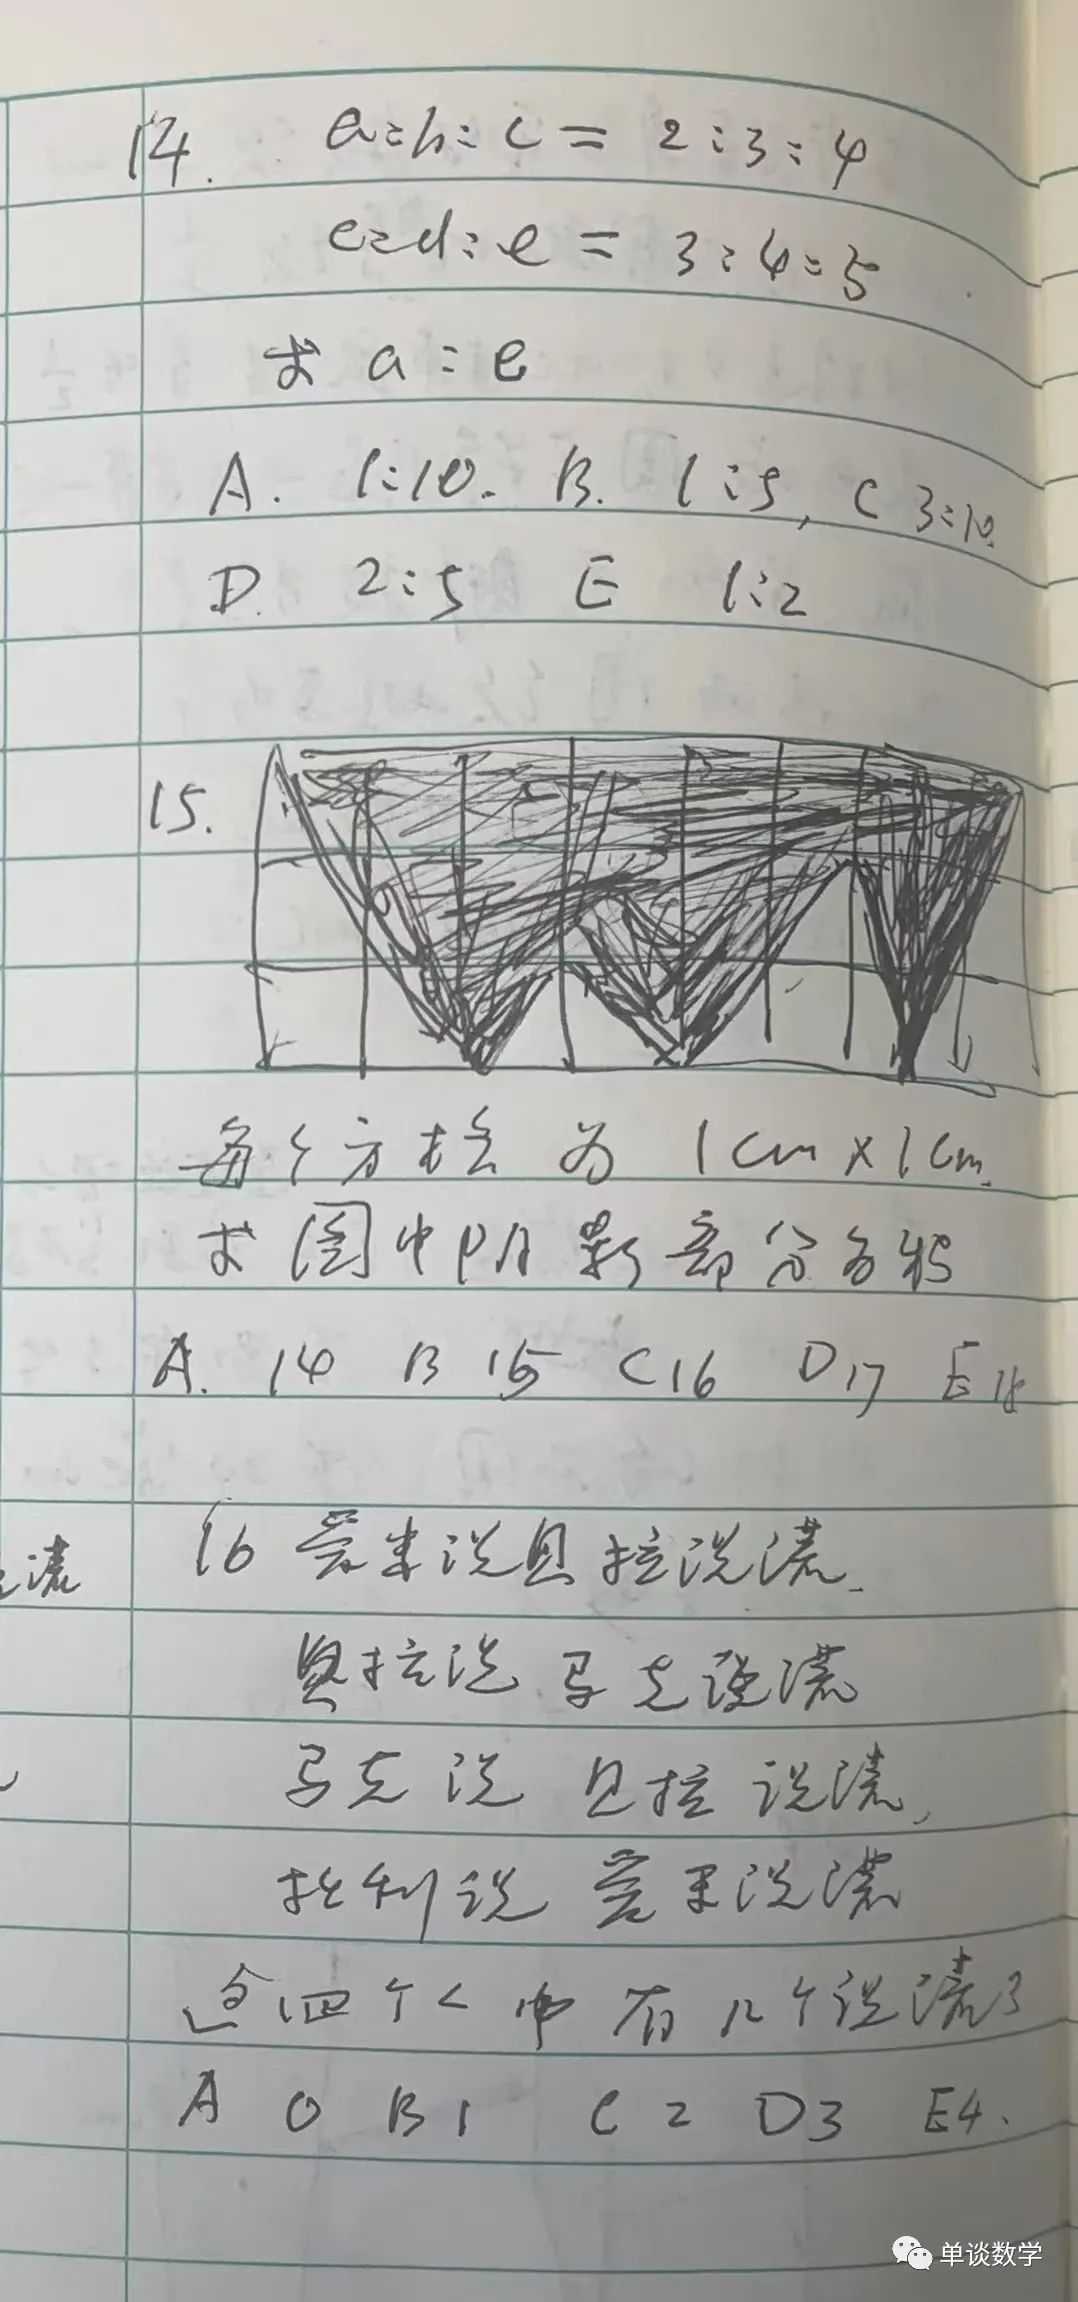 14. a:b:c = 2:3:4
c:d:e = 3:4:5
求 a:e
A. 1:10. B. 1:5, C 3:10.
D. 2:5 E 1:2
15.
每个方格为 1cm×1cm.
求图中阴影部分面积
A. 14 B 15 C 16 D 17 E 18
说谎
16 爱末说贝拉说谎.
贝拉说马克说谎
马克说贝拉说谎,
托利说爱末说谎
这四个人中有几个说谎?
A 0 B 1 C 2 D 3 E 4.
单谈数学